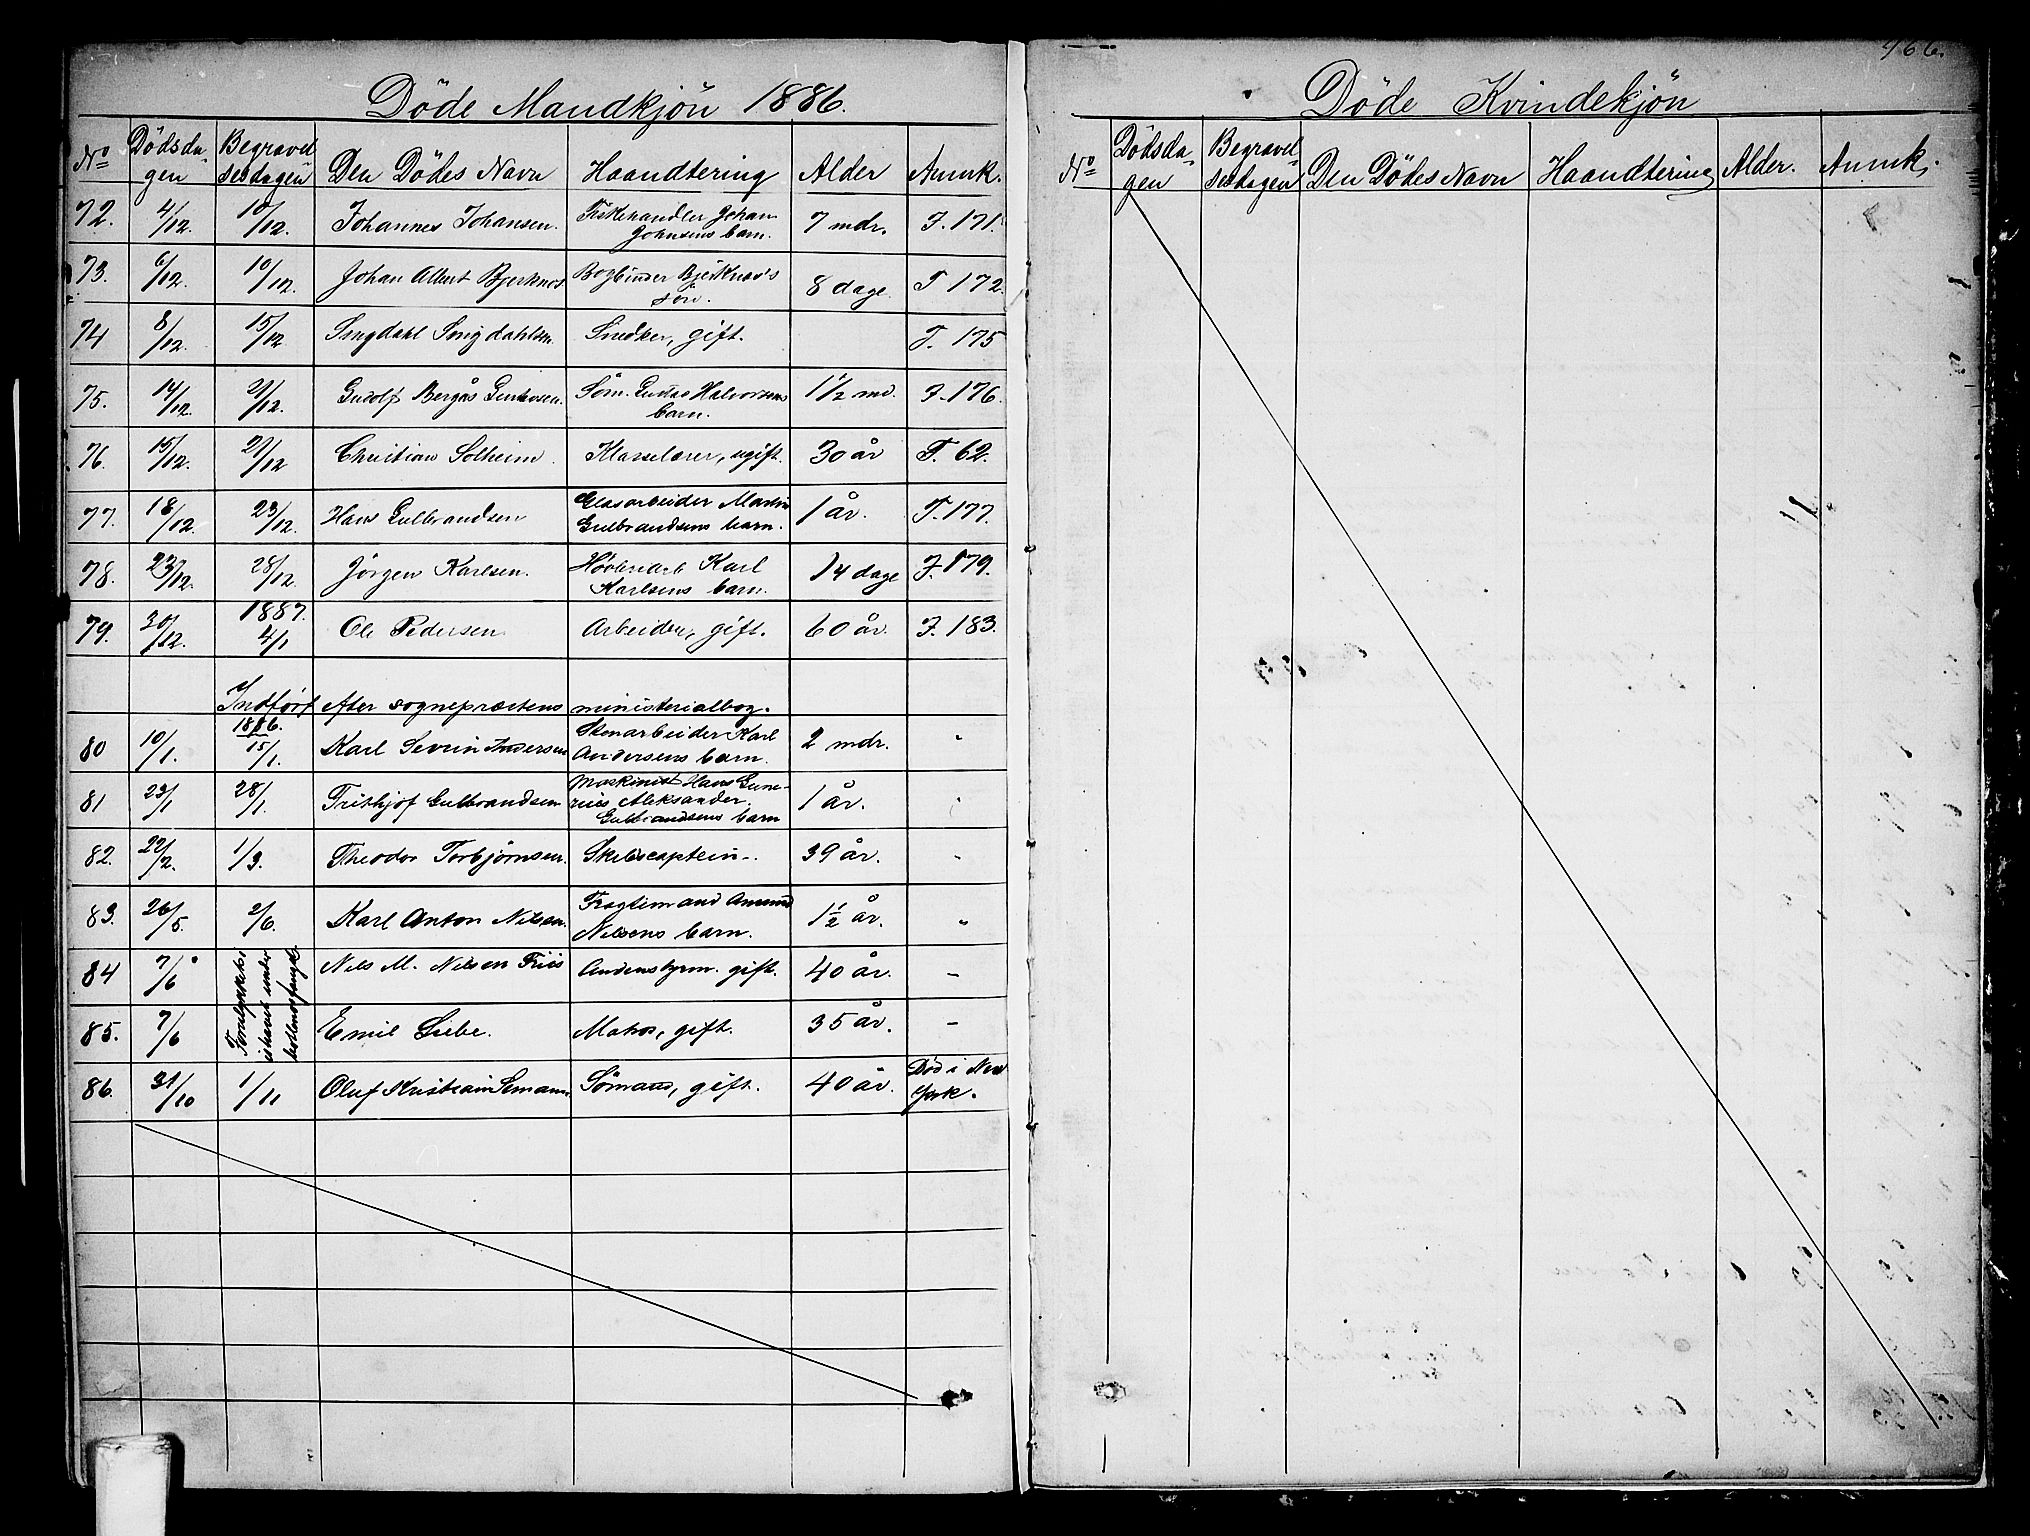 Döde Mandkjön 1886.
No Dödsda- Begravel- Den Dödes Navn Haandtering Alder Anmk.
gen sesdagen
72. 4/12. 10/12. Johannes Johansen. Fiskehandler Johan 7 mdr. F. 171.
Johnsens barn.
73. 6/12. 10/12. Johan Albert Bjerknes. Bogbinder Bjerknes's 8 dage. F 172.
sön.
74 8/12. 15/12 Syngdahl Syngdahlsen. Snedker, gift. F. 175
75. 14/12. 21/12. Gudolf Bergås Gustavsen. Söm. Gustav Halvorsens 1 1/2 md. F. 176.
barn.
76. 15/12. 21/12 Christian Solheim. Klasselærer, ugift. 30 år F. 62.
77. 18/12. 23/12. Hans Gulbrandsen Glasarbeider Martin 1 år. F. 177.
Gulbrandsens barn.
78. 23/12. 28/12. Jörgen Karlsen. Høvleriarb Karl 14 dage F. 179.
Karlsens barn.
79. 30/12. 1887. 4/1 Ole Pedersen Arbeider, gift. 60 år. F. 183.
Indført efter sognepræstens ministerialbog.
1886.
80 10/1. 15/1. Karl Severin Andersen Stenarbeider Karl 2 mdr. "
Andersens barn.
81 23/1 28/1. Frithjof Gulbrandsen Maskinist Hans Gune- 1 år. "
rius Aleksander
Gulbrandsens barn
82. 22/2. 1/3. Theodor Torbjörnsen. Skibscaptein. 39 år. "
83. 26/5. 2/6. Karl Anton Nilsen. Fragtemand Amund 1 1/2 år. "
Nilsens barn.
84 7/6 Forulykket i Nils M. Nilsen Friis Andenstyrm. gift. 40 år. –
ishavet under
85. 7/6 bottlenosfangst. Emil Liebe. Matros, gift. 35 år. –
86. 31/10 1/11 Oluf Kristian Semann. Sömand, gift. 40 år. Död i New
York.
466.
Döde Kvindekjön
No Dödsda- Begravel- Den Dödes Navn Haandtering Alder. Anmk.
gen sesdagen